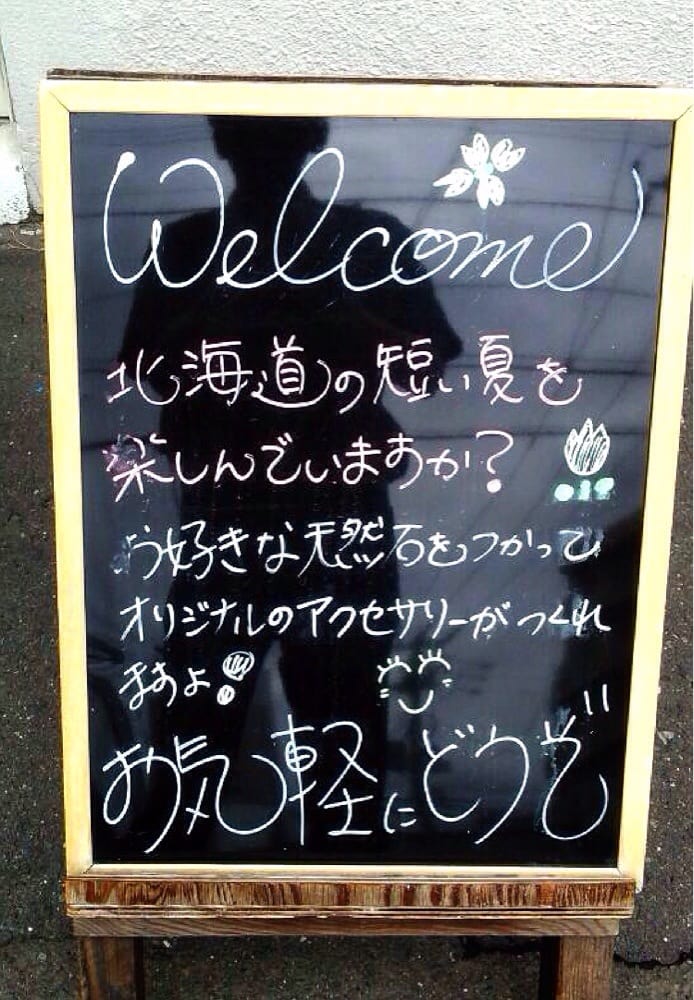 Welcome
北海道の短い夏を
楽しんでいますか?
お好きな天然石をつかって
オリジナルのアクセサリーがつくれ
ますよ!
お気軽にどうぞ